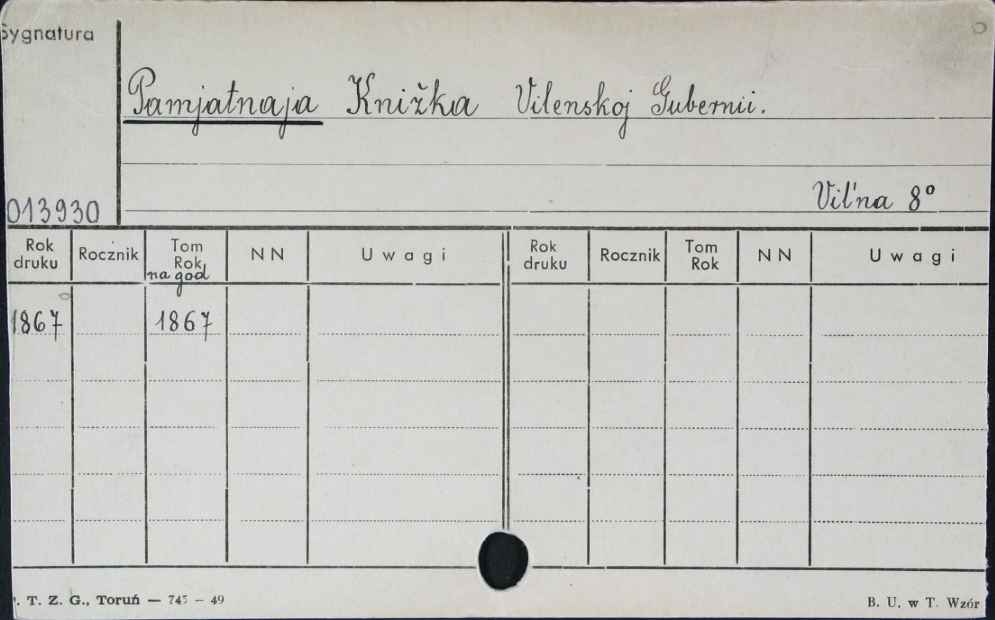 Sygnatura
Pamjatnaja Knižka Vilenskoj Gubernii.
Vil'na 8º
013930
Rok druku Rocznik Tom Rok na god N N Uwagi Rok druku Rocznik Tom Rok N N Uwagi
1867 1867
. T. Z. G., Toruń — 745 — 49 B. U. w T. Wzór